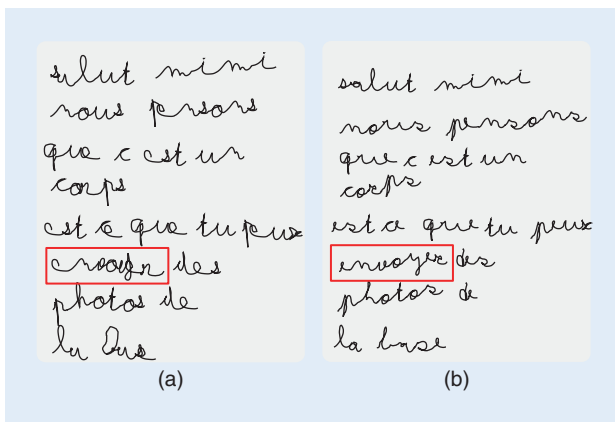 salut mimi
nous pensons
que c est un
corps
est ce que tu peux
des
photos de
la
(a)
salut mimi
nous pensons
que c est un
corps
est ce que tu peux
envoyer des
photos de
la base
(b)